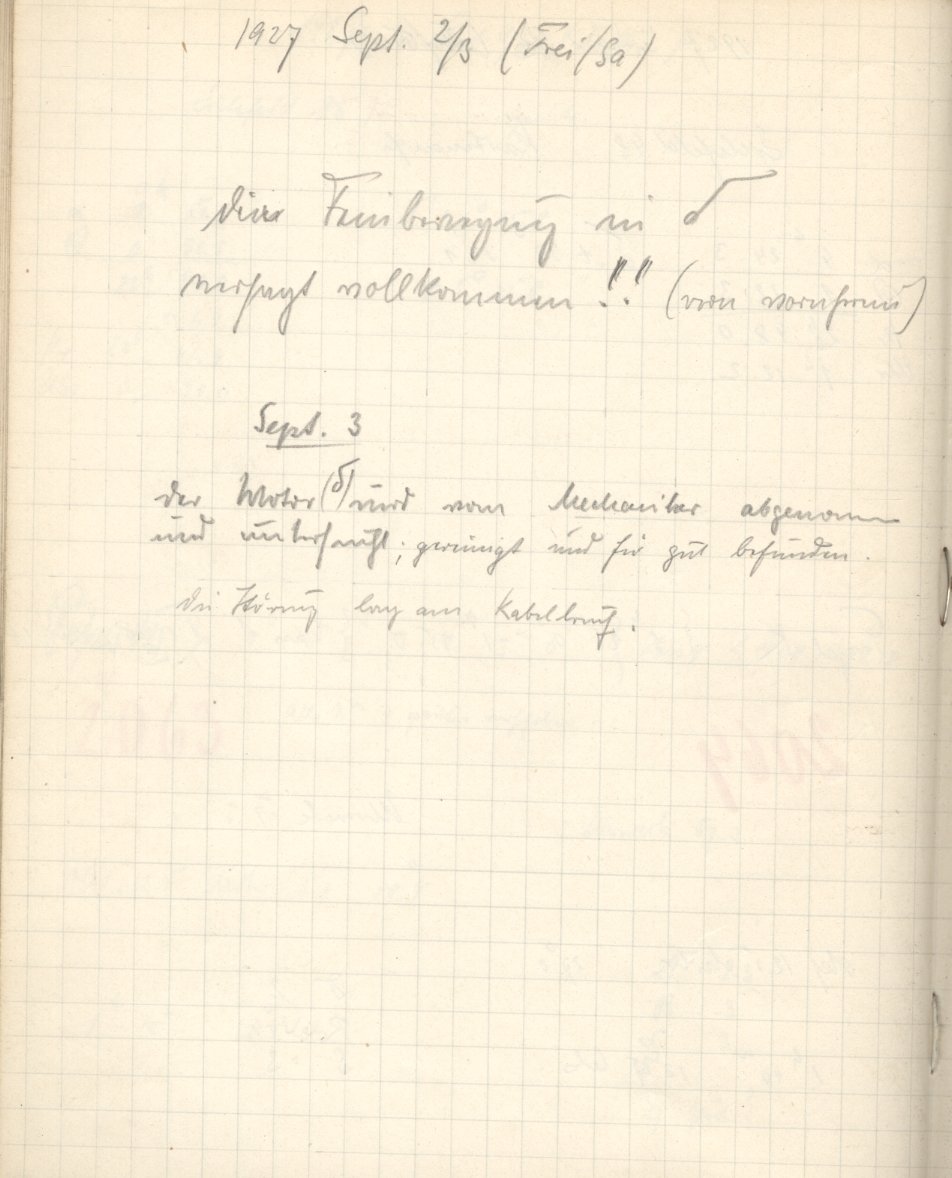 1927 Sept. 2/3 (Frei/Sa)
die Feinbewegung in δ
versagt vollkommen!! (von vornherein)
Sept. 3
der Motor (δ) wird vom Mechaniker abgenommen
und untersucht; gereinigt und für gut befunden.
die Störung lag am Kabelbruch.